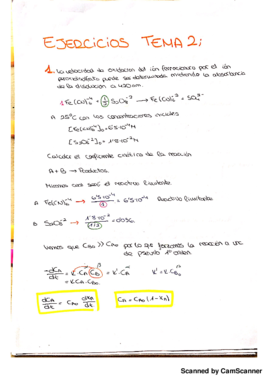 EJERCICIOS TEMA 2:
1. La velocidad de oxidación del ión ferrocianuro por el ión
peroxodisulfato puede ser determinada midiendo la absorbancia
de la disolución a 420 nm.
1 Fe(CN)6⁻⁴ + (1/2) S2O8⁻² → Fe(CN)6⁻³ + SO4⁻²
A 25°C con las concentraciones iniciales
[Fe(CN)6⁻⁴]0 = 6'5·10⁻⁴ M
[S2O8⁻²]0 = 1'8·10⁻² M
Calcular el coeficiente cinético de la reacción
A + B → Productos.
Miramos cual será el reactivo limitante
A Fe(CN)6⁻⁴ → 6'5·10⁻⁴ / (1) = 6'5·10⁻⁴ Reactivo limitante
B S2O8⁻² → 1'8·10⁻² / (1/2) = 0'036
Vemos que CB0 >> CA0 por lo que hacemos la reacción a una
de pseudo 1er orden.
-dCA/dt = k·CA·CB = k'·CA k' = k·CB0
= k·CA·CB0
dCA/dt = CA0 dXA/dt CA = CA0 (1-XA)
Scanned by CamScanner